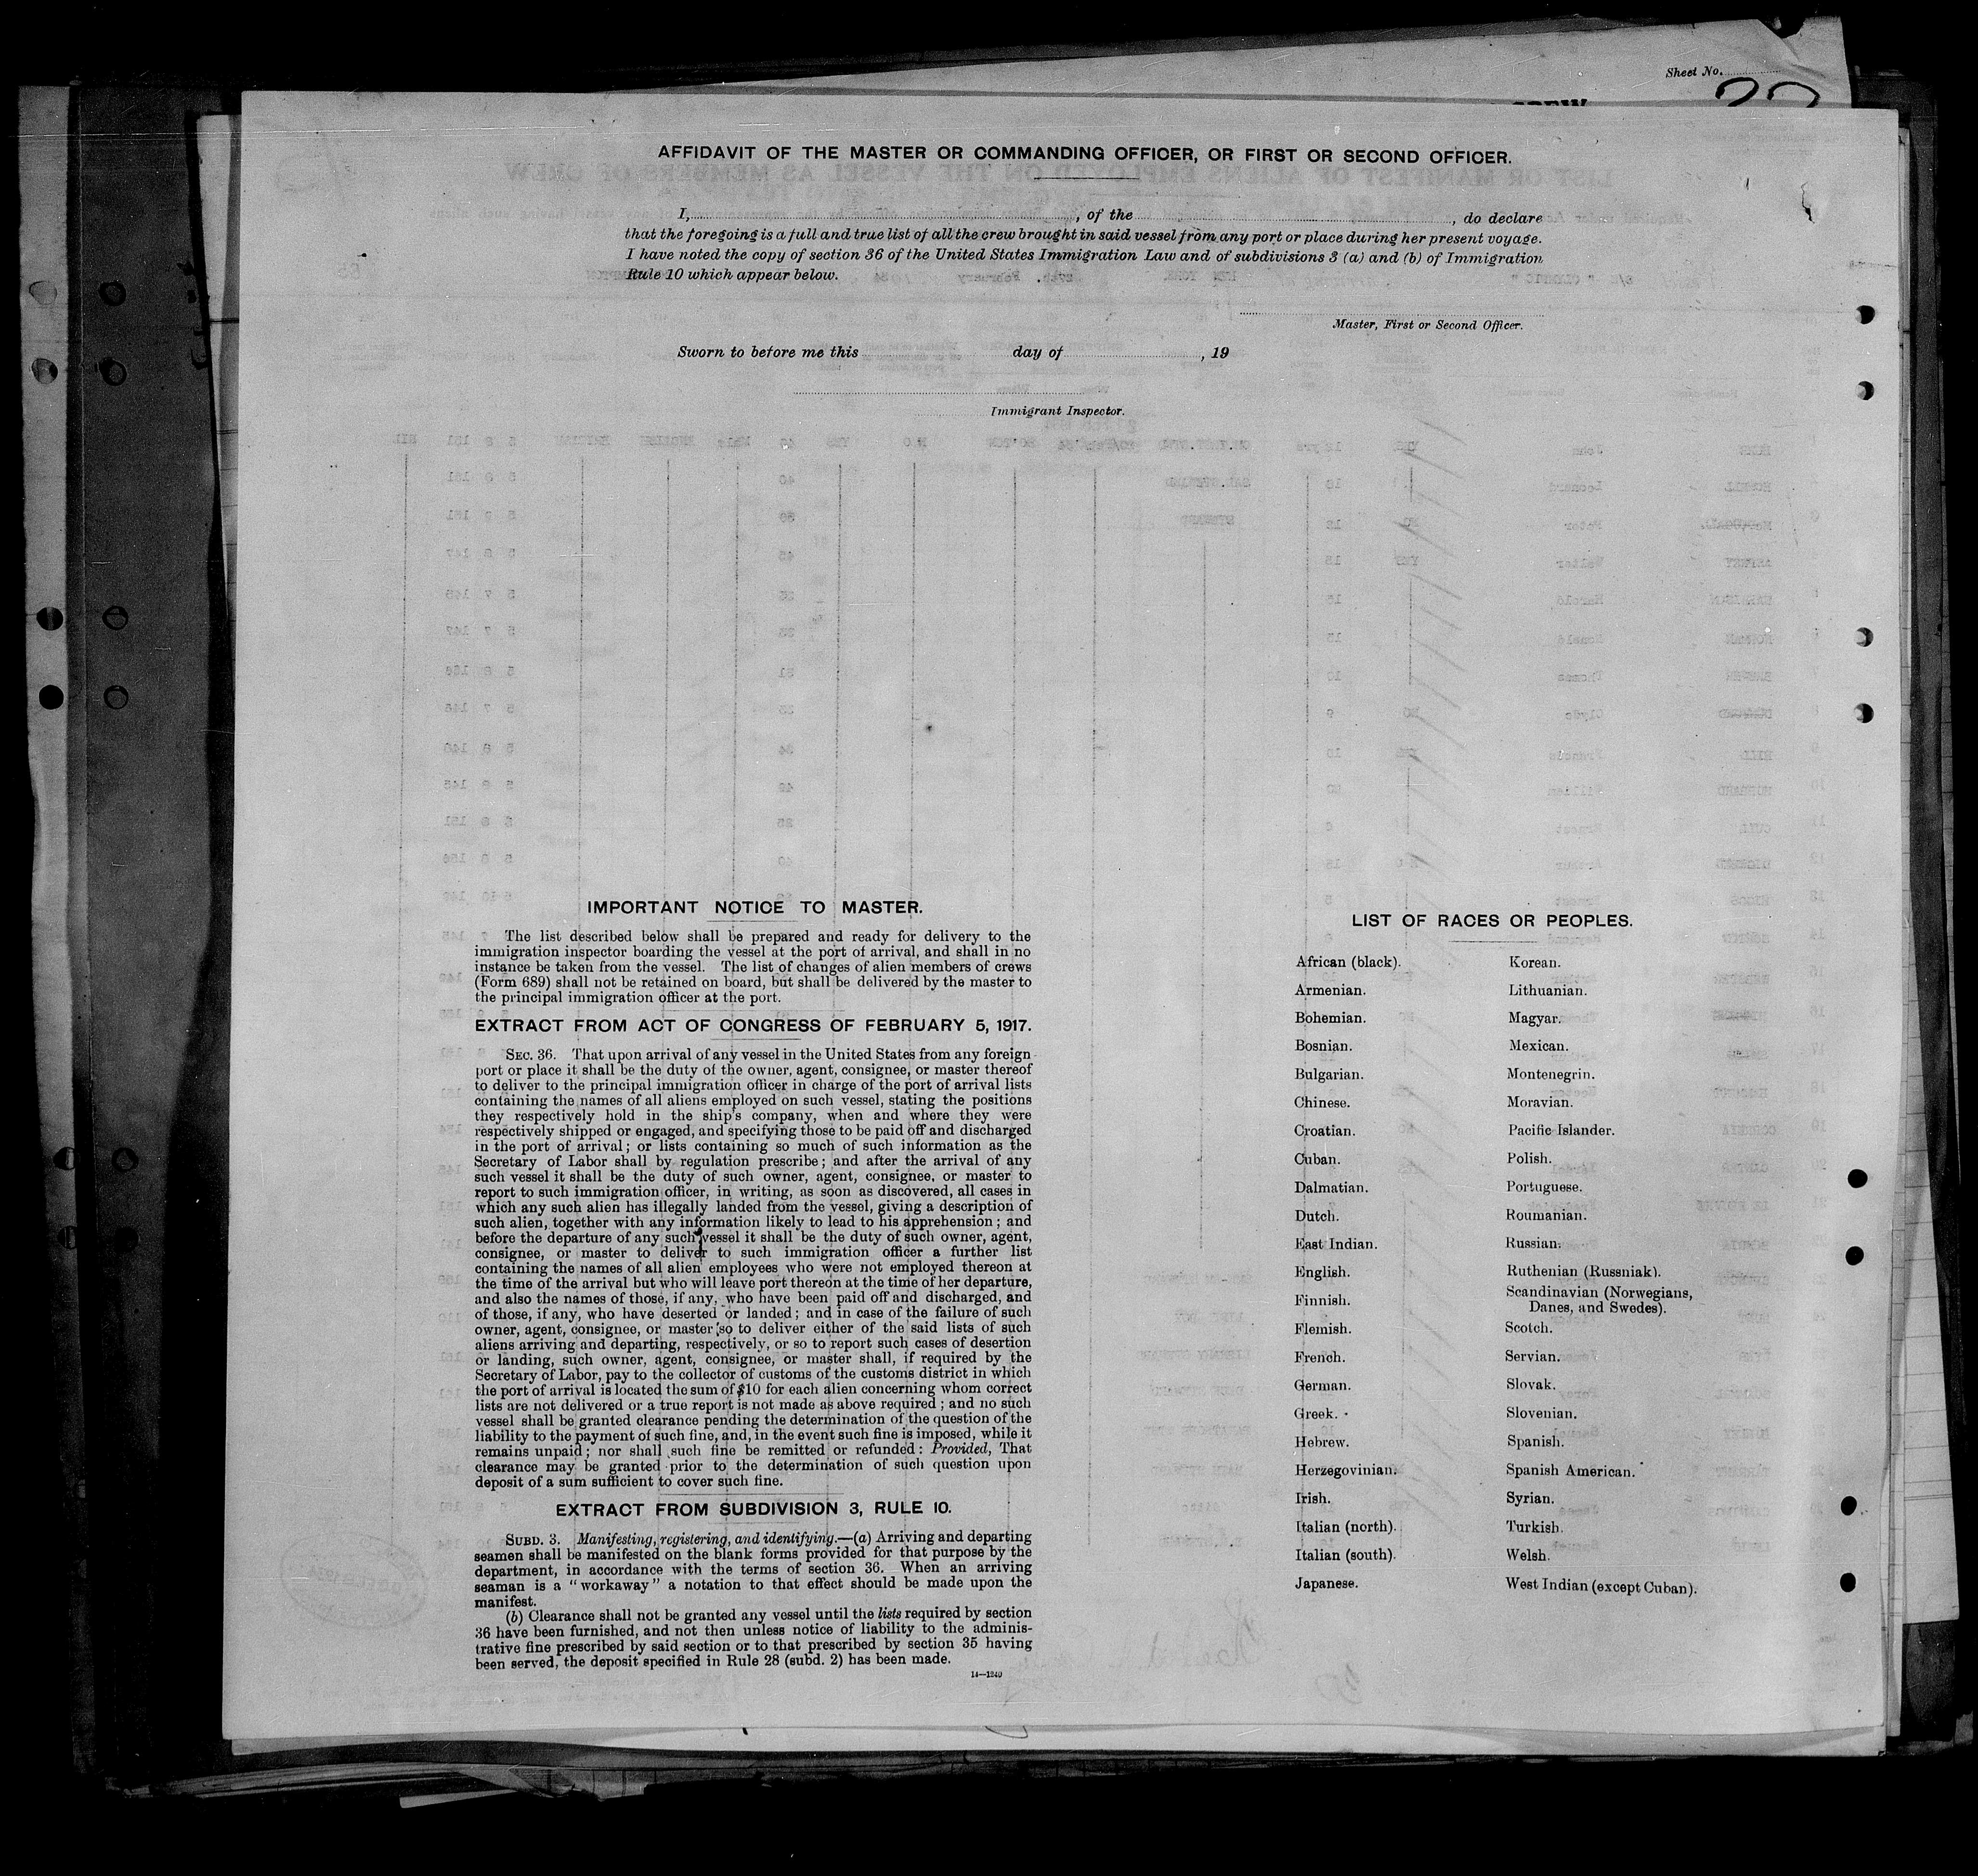 Sheet No.
AFFIDAVIT OF THE MASTER OR COMMANDING OFFICER, OR FIRST OR SECOND OFFICER.
I, , of the , do declare
that the foregoing is a full and true list of all the crew brought in said vessel from any port or place during her present voyage.
I have noted the copy of section 36 of the United States Immigration Law and of subdivisions 3 (a) and (b) of Immigration
Rule 10 which appear below.
Master, First or Second Officer.
Sworn to before me this day of , 19
Immigrant Inspector.
IMPORTANT NOTICE TO MASTER.
The list described below shall be prepared and ready for delivery to the
immigration inspector boarding the vessel at the port of arrival, and shall in no
instance be taken from the vessel. The list of changes of alien members of crews
(Form 689) shall not be retained on board, but shall be delivered by the master to
the principal immigration officer at the port.
EXTRACT FROM ACT OF CONGRESS OF FEBRUARY 5, 1917.
SEC. 36. That upon arrival of any vessel in the United States from any foreign
port or place it shall be the duty of the owner, agent, consignee, or master thereof
to deliver to the principal immigration officer in charge of the port of arrival lists
containing the names of all aliens employed on such vessel, stating the positions
they respectively hold in the ship's company, when and where they were
respectively shipped or engaged, and specifying those to be paid off and discharged
in the port of arrival; or lists containing so much of such information as the
Secretary of Labor shall by regulation prescribe; and after the arrival of any
such vessel it shall be the duty of such owner, agent, consignee, or master to
report to such immigration officer, in writing, as soon as discovered, all cases in
which any such alien has illegally landed from the vessel, giving a description of
such alien, together with any information likely to lead to his apprehension; and
before the departure of any such vessel it shall be the duty of such owner, agent,
consignee, or master to deliver to such immigration officer a further list
containing the names of all alien employees who were not employed thereon at
the time of the arrival but who will leave port thereon at the time of her departure,
and also the names of those, if any, who have been paid off and discharged, and
of those, if any, who have deserted or landed; and in case of the failure of such
owner, agent, consignee, or master so to deliver either of the said lists of such
aliens arriving and departing, respectively, or so to report such cases of desertion
or landing, such owner, agent, consignee, or master shall, if required by the
Secretary of Labor, pay to the collector of customs of the customs district in which
the port of arrival is located the sum of $10 for each alien concerning whom correct
lists are not delivered or a true report is not made as above required; and no such
vessel shall be granted clearance pending the determination of the question of the
liability to the payment of such fine, and, in the event such fine is imposed, while it
remains unpaid; nor shall such fine be remitted or refunded: Provided, That
clearance may be granted prior to the determination of such question upon
deposit of a sum sufficient to cover such fine.
EXTRACT FROM SUBDIVISION 3, RULE 10.
SUBD. 3. Manifesting, registering, and identifying.—(a) Arriving and departing
seamen shall be manifested on the blank forms provided for that purpose by the
department, in accordance with the terms of section 36. When an arriving
seaman is a "workaway" a notation to that effect should be made upon the
manifest.
(b) Clearance shall not be granted any vessel until the lists required by section
36 have been furnished, and not then unless notice of liability to the adminis-
trative fine prescribed by said section or to that prescribed by section 35 having
been served, the deposit specified in Rule 28 (subd. 2) has been made.
14—1240
LIST OF RACES OR PEOPLES.
African (black).
Armenian.
Bohemian.
Bosnian.
Bulgarian.
Chinese.
Croatian.
Cuban.
Dalmatian.
Dutch.
East Indian.
English.
Finnish.
Flemish.
French.
German.
Greek.
Hebrew.
Herzegovinian.
Irish.
Italian (north).
Italian (south).
Japanese.
Korean.
Lithuanian.
Magyar.
Mexican.
Montenegrin.
Moravian.
Pacific Islander.
Polish.
Portuguese.
Roumanian.
Russian.
Ruthenian (Russniak).
Scandinavian (Norwegians,
Danes, and Swedes).
Scotch.
Servian.
Slovak.
Slovenian.
Spanish.
Spanish American.
Syrian.
Turkish.
Welsh.
West Indian (except Cuban).